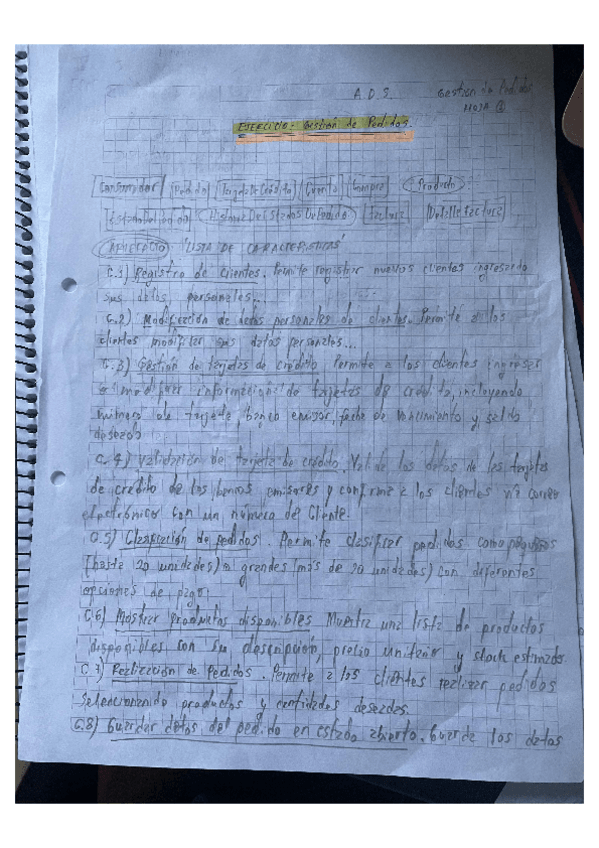 A.D.S. Gestion de Pedidos
HOJA ①
EJERCICIO - Gestión de Pedidos.
Consumidor Pedido Tarjeta de Crédito Cuenta Compra Producto
Estado Del Pedido Historia Del Estados De Pedido Factura Detalle Factura
"LISTA DE CARACTERISTICAS"
C.1) Registro de clientes. Permite registrar nuevos clientes ingresando
sus datos personales..
C.2) Modificación de datos personales de clientes. Permite a los
clientes modificar sus datos personales...
C.3) Gestión de tarjetas de crédito Permite a los clientes ingresar
o modificar información de tarjetas de credito, incluyendo
número de tarjeta, banco emisor, fecha de vencimiento y saldo
deseado
C.4) Validación de tarjeta de crédito. Valida los datos de las tarjetas
de crédito de los bancos emisores y confirma a los clientes vía correo
electrónico con un número de Cliente.
C.5) Clasificación de pedidos. Permite clasificar pedidos como pequeños
(hasta 20 unidades) o grandes (más de 20 unidades) con diferentes
opciones de pago.
C.6) Mostrar productos disponibles Muestra una lista de productos
disponibles con su descripción, precio unitario y stock estimado.
C.7) Realización de Pedidos. Permite a los clientes realizar pedidos
seleccionando productos y cantidades deseadas.
C.8) Guardar datos del pedido en estado abierto. Guarda los datos